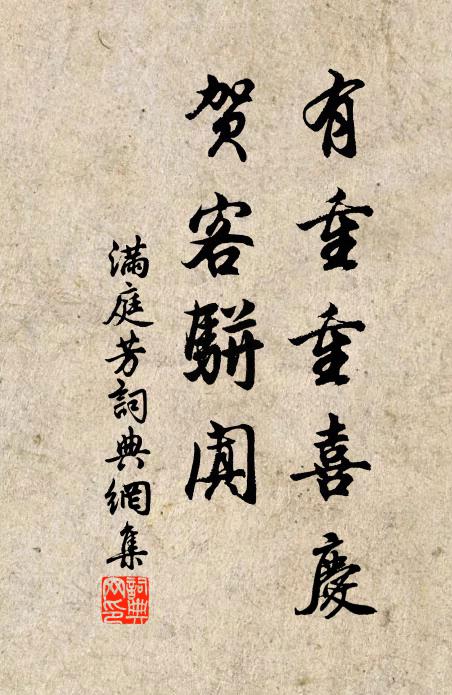 有重重喜慶
賀客駢闐
滿庭芳詞典網集
詞典网印